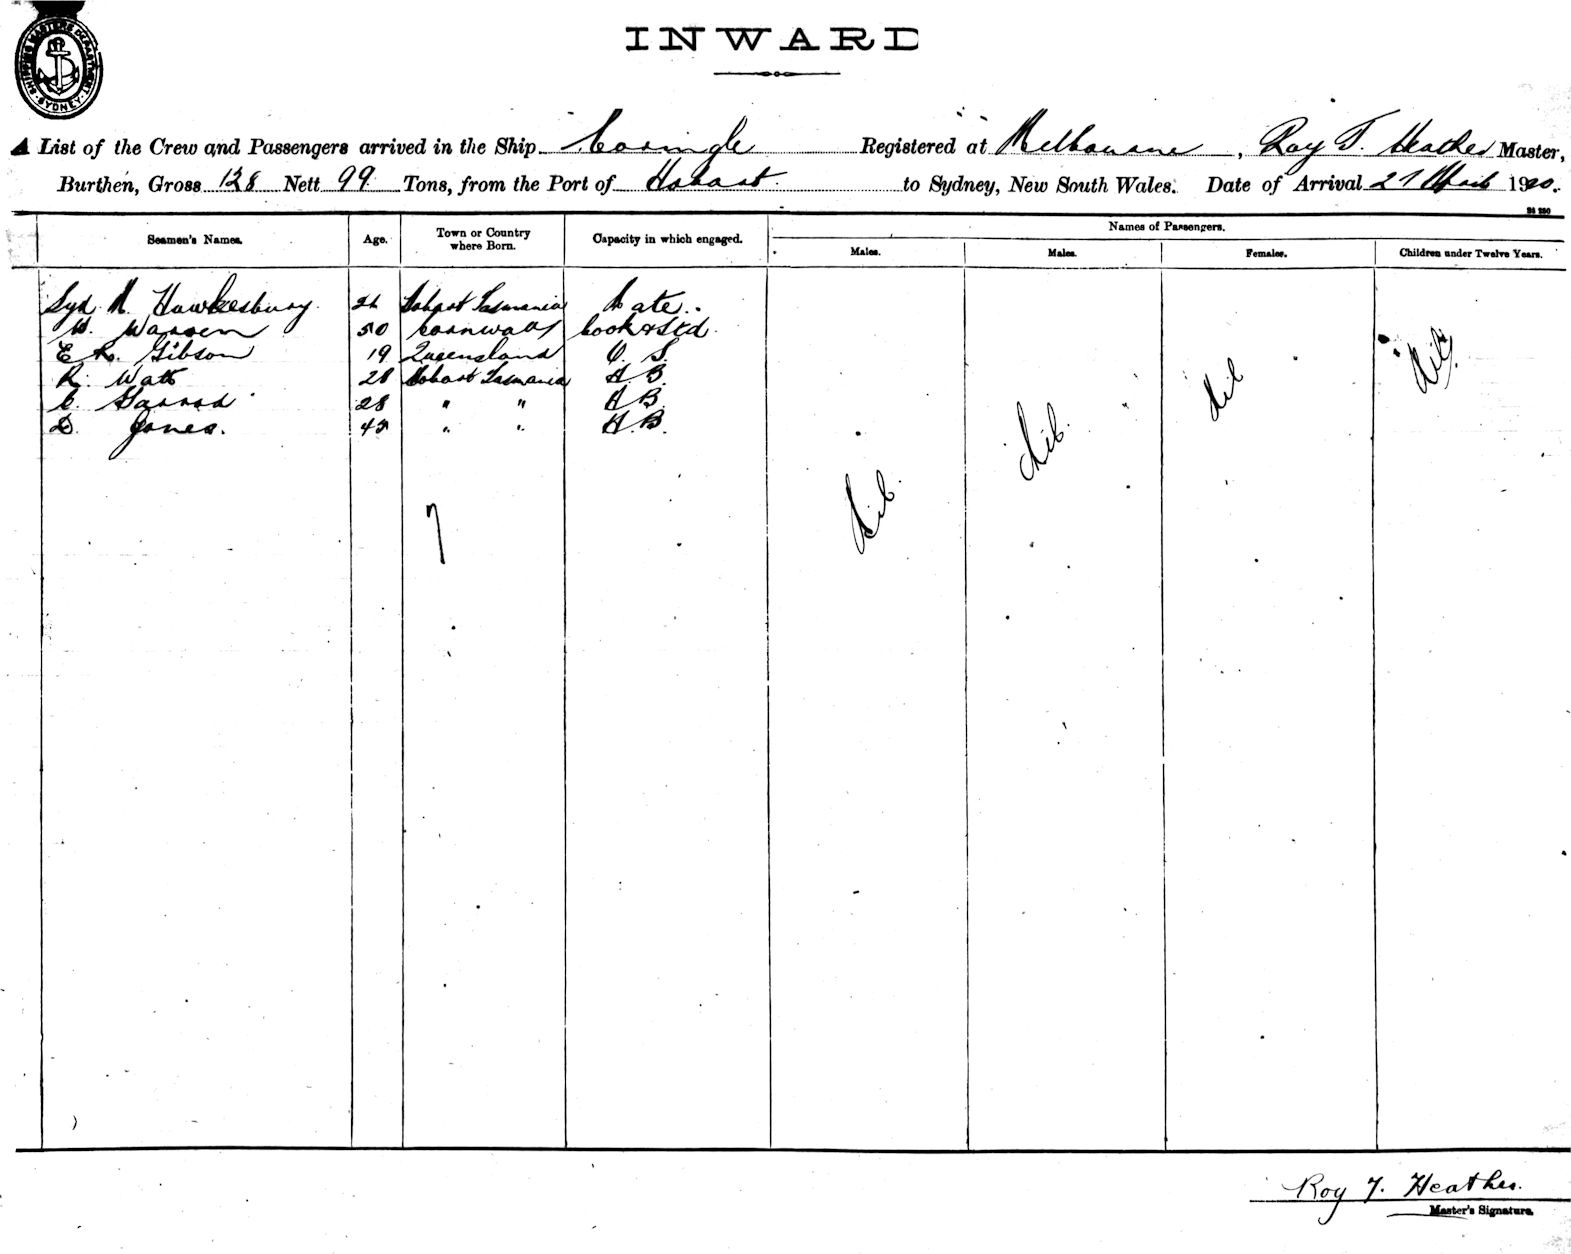 SHIPPING MASTERS DEPARTMENT SYDNEY
INWARD
A List of the Crew and Passengers arrived in the Ship Coringle Registered at Melbourne, Roy T. Heather Master,
Burthen, Gross 128 Nett 99 Tons, from the Port of Hobart. to Sydney, New South Wales. Date of Arrival April 1920.
Seamen's Names. Age. Town or Country where Born. Capacity in which engaged. Names of Passengers.
Males. Males. Females. Children under Twelve Years.
Syd Hawkesbury. Hobart Tasmania Mate.
W. Warren 50 Cornwall Cook & Std.
E R. Gibson 19 Queensland O. S.
R. Watt 28 Hobart Tasmania A. B.
C. Garrod 28 " " A B.
D. Jones. " " A. B.
Nil. Nil. Nil Nil.
7
Roy T. Heather.
Master's Signature.